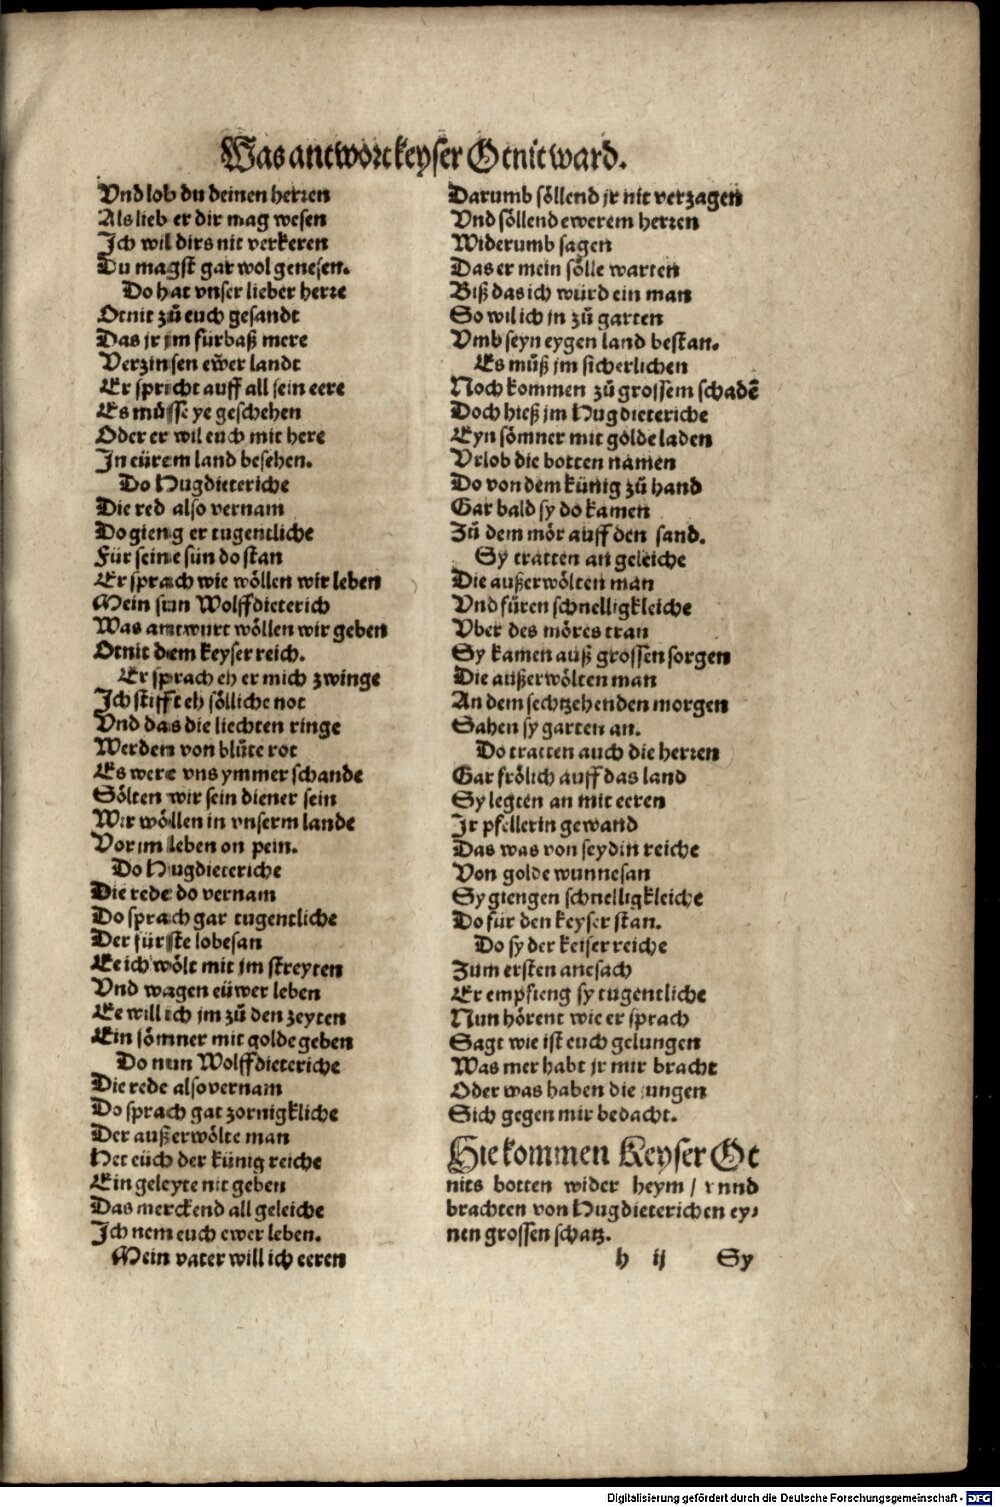 Was antwort keyser Otnit ward.
Vnd lob du deinen herren
Als lieb er dir mag wesen
Ich wil dirs nit verkeren
Du magst gar wol genesen.
Do hat vnser lieber herre
Otnit zů euch gesandt
Das jr jm fürbaß mere
Verzinsen eẅer landt
Er spricht auff all sein eere
Es můsse ye geschehen
Oder er wil euch mit here
In eürem land besehen.
Do Hugdieteriche
Die red also vernam
Do gieng er tugentliche
Für seine sün do stan
Er sprach wie wöllen wir leben
Mein sun Wolffdieterich
Was antwurt wöllen wir geben
Otnit dem keyser reich.
Er sprach eh er mich zwinge
Ich stifft eh sölliche not
Vnd das die liechten ringe
Werden von blůte rot
Es were vns ymmer schande
Sölten wir sein diener sein
Wir wöllen in vnserm lande
Vor im leben on pein.
Do Hugdieteriche
Die rede do vernam
Do sprach gar tugentliche
Der fürste lobesan
Ee ich wölt mit jm streyten
Vnd wagen eüwer leben
Ee will ich jm zů den zeyten
Ein sömner mit golde geben
Do nun Wolffdieteriche
Die rede also vernam
Do sprach gat zornigkliche
Der außerwölte man
Het eüch der künig reiche
Ein geleyte nit geben
Das merckend all geleiche
Ich nem euch ewer leben.
Mein vater will ich eeren
Darumb söllend jr nit verzagen
Vnd söllend ewerem herren
Widerumb sagen
Das er mein sölle warten
Biß das ich würd ein man
So wil ich jn zů garten
Vmb seyn eygen land bestan.
Es můß jm sicherlichen
Noch kommen zů grossem schadē
Doch hieß jm Hugdieteriche
Eyn sömner mit golde laden
Vrlob die botten namen
Do von dem künig zů hand
Gar bald sy do kamen
Zů dem mör auff den sand.
Sy tratten an geleiche
Die außerwölten man
Vnd fůren schnelligkleiche
Vber des möres tran
Sy kamen auß grossen sorgen
Die außerwölten man
An dem sechtzehenden morgen
Sahen sy garten an.
Do tratten auch die herren
Gar frölich auff das land
Sy legten an mit eeren
Ir pfellerin gewand
Das was von seydin reiche
Von golde wunnesan
Sy giengen schnelligkleiche
Do für den keyser stan.
Do sy der keiser reiche
Zum ersten anesach
Er empfieng sy tugentliche
Nun hörent wie er sprach
Sagt wie ist euch gelungen
Was mer habt jr mir bracht
Oder was haben die jungen
Sich gegen mir bedacht.
Hie kommen Keyser Ot
nits botten wider heym / vnnd
brachten von Hugdieterichen ey⸗
nen grossen schatz.
h ij Sy
Digitalisierung gefördert durch die Deutsche Forschungsgemeinschaft - DFG